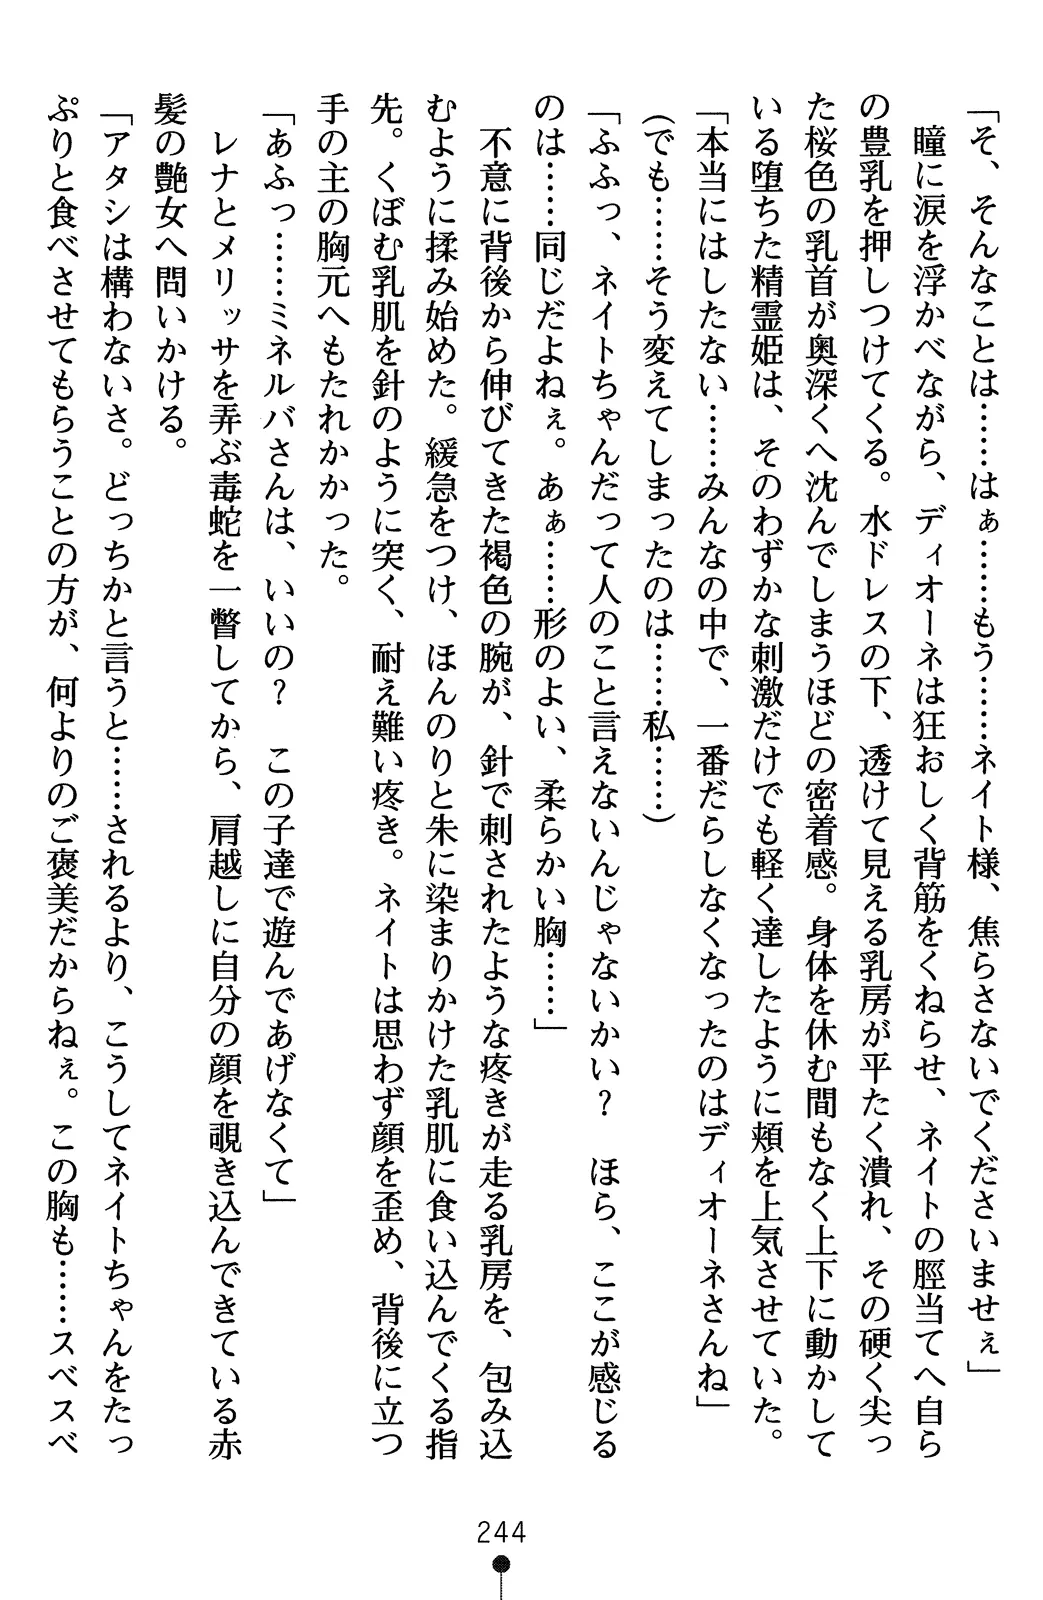 「そ、そんなことは……はぁ………もう……ネイト様、焦らさないでくださいませぇ」
　瞳に涙を浮かべながら、ディオーネは狂おしく背筋をくねらせ、ネイトの脛当てへ自ら
の豊乳を押しつけてくる。水ドレスの下、透けて見える乳房が平たく潰れ、その硬く尖っ
た桜色の乳首が奥深くへ沈んでしまうほどの密着感。身体を休む間もなく上下に動かして
いる堕ちた精霊姫は、そのわずかな刺激だけでも軽く達したように頬を上気させていた。
「本当にはしたない……みんなの中で、一番だらしなくなったのはディオーネさんね」
(でも……そう変えてしまったのは……私……)
「ふふっ、ネイトちゃんだって人のこと言えないんじゃないかい？　ほら、ここが感じる
のは……同じだよねぇ。あぁ……形のよい、柔らかい胸……」
　不意に背後から伸びてきた褐色の腕が、針で刺されたような疼きが走る乳房を、包み込
むように揉み始めた。緩急をつけ、ほんのりと朱に染まりかけた乳肌に食い込んでくる指
先。くぼむ乳肌を針のように突く、耐え難い疼き。ネイトは思わず顔を歪め、背後に立つ
手の主の胸元へもたれかかった。
「あふっ………ミネルバさんは、いいの？　この子達で遊んであげなくて」
　レナとメリッサを弄ぶ毒蛇を一瞥してから、肩越しに自分の顔を覗き込んできている赤
髪の艶女へ問いかける。
「アタシは構わないさ。どっちかと言うと……されるより、こうしてネイトちゃんをたっ
ぷりと食べさせてもらうことの方が、何よりのご褒美だからねぇ。この胸も……スベスベ
244